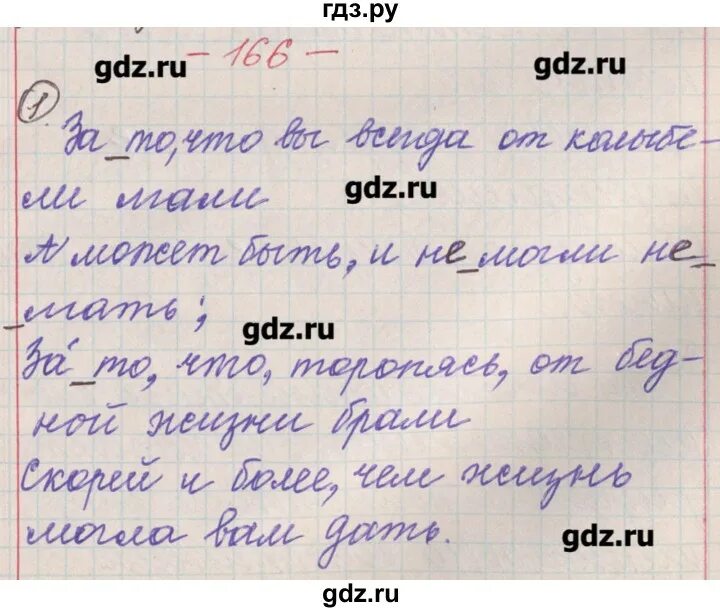 гдз.ру
- 166 -
gdz.ru gdz.ru
1
За_то, что вы всегда от колыбе-
ли лгали
gdz.ru
А может быть, и не_могли не_
_лгать;
gdz.ru
За́_то, что, торопясь, от бед-
ной жизни брали
Скорей и более, чем жизнь
могла вам дать.
gdz.ru
gdz.ru